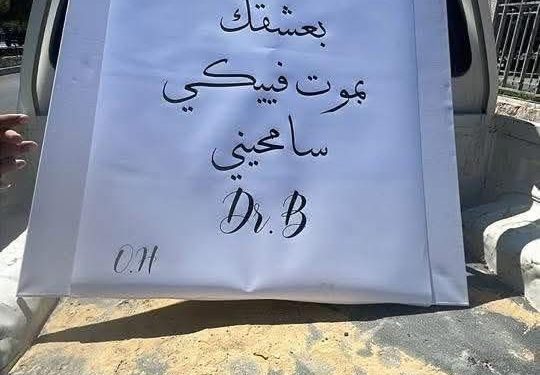 بعشقك
بموت فييكي
سامحيني
Dr. B
O.H